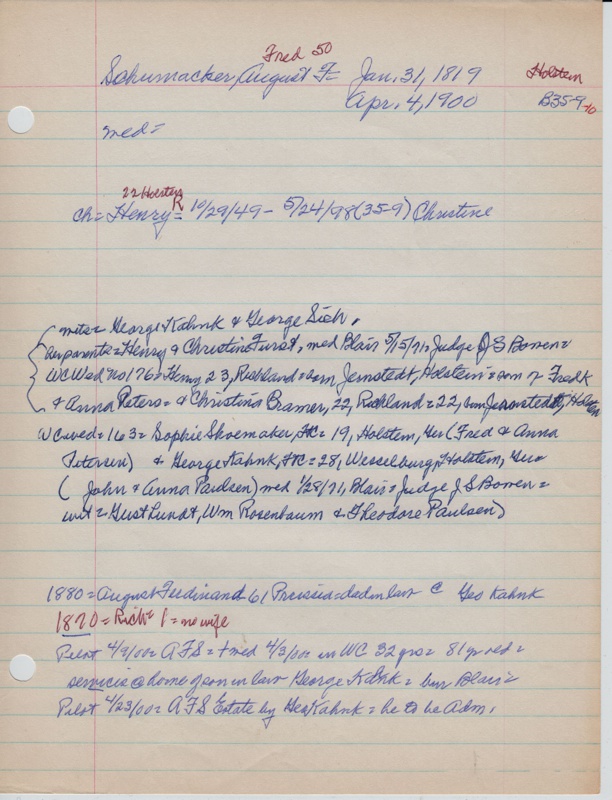 Fred 50
Schumacker, August F= Jan. 31, 1819 Holstein
Apr. 4, 1900 B35-9-10
med=
22 Holstein R
ch= Henry= 10/29/49 - 5/24/98 (35-9) Christine
wits= George Kahnk & George Sieh.
her parents= Henry & Christine Furst, med Blair 5/15/71, Judge J S Bowen=
WC Wed No 176= Henry 23, Richland= born Jernstedt, Holstein= son of Fredk
& Anna Peters= & Christina Bramer, 22, Richland= 22, born Jernstedt, Holstein
WC wed= 163= Sophie Shoemaker, FC= 19, Holstein, Ger (Fred & Anna
Petersen) & George Kahnk, FC= 28, Wesselburg, Holstein, Ger=
(John & Anna Paulsen) med 1/28/71, Blair= Judge J S Bowen=
wit= Gust Lundt, Wm Rosenbaum & Theodore Paulsen)
1880= August Ferdinand 61 Prussia= dad in law @ Geo Kahnk
1870= Rich= 1= no wife
Pilot 4/9/00= AFS= + wed 4/3/00= in WC 32 yrs= 81 yr old=
services @ home of son in law George Kahnk= bur Blair=
Pilot 4/23/00= AFS Estate by Geo Kahnk= he to be Adm.